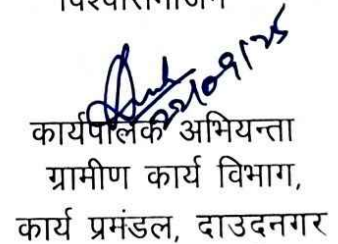 विश्वासभाजन
22/09/25
कार्यपालक अभियन्ता
ग्रामीण कार्य विभाग,
कार्य प्रमंडल, दाउदनगर